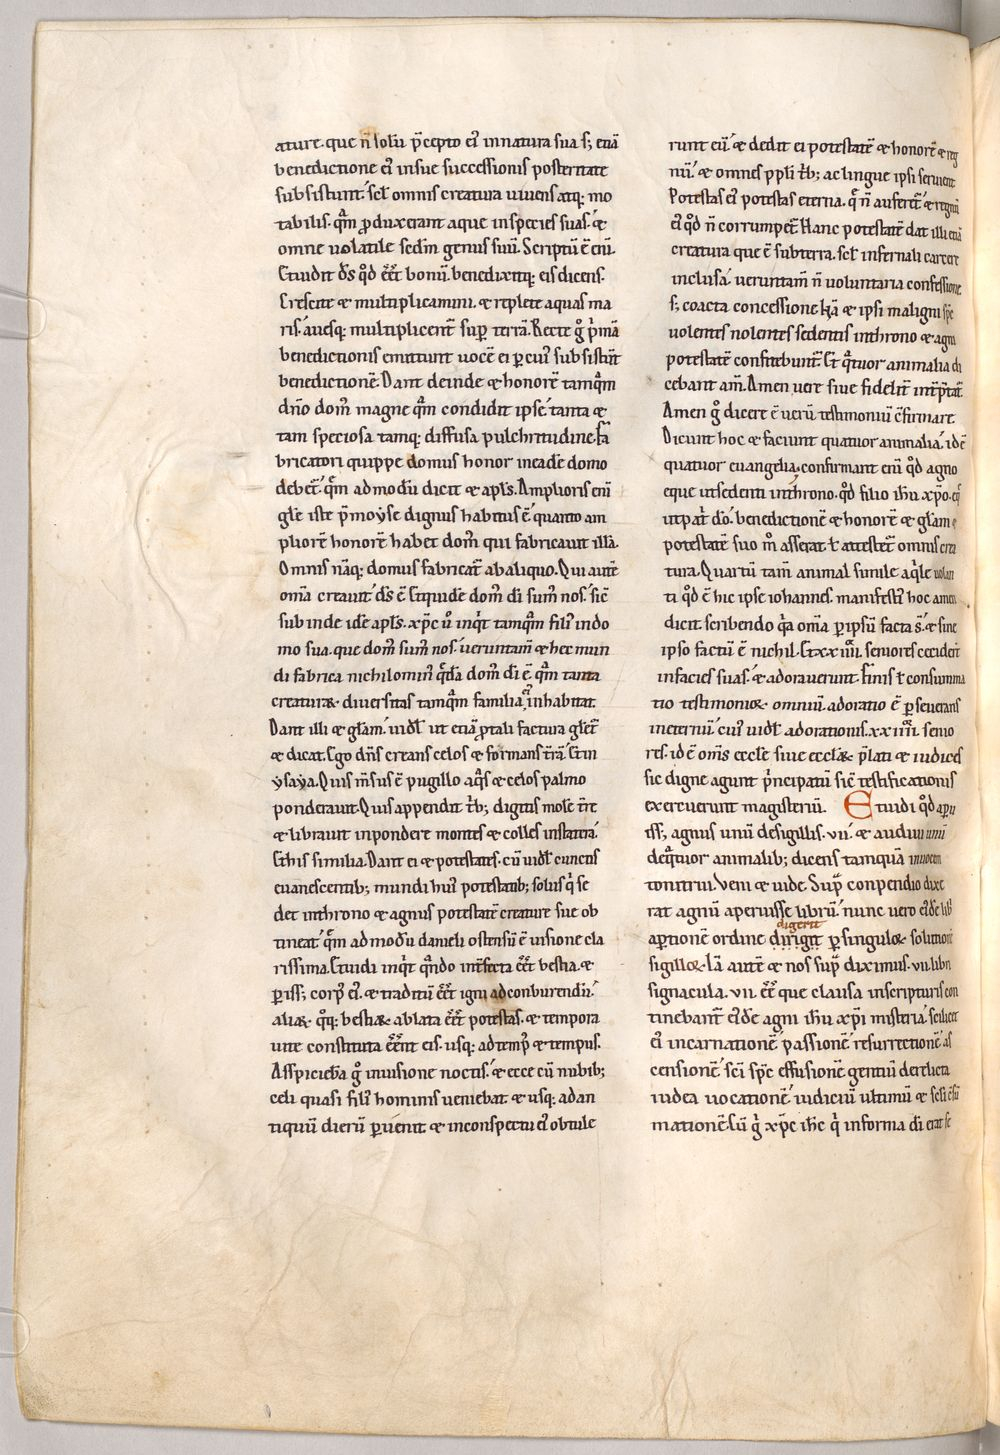 ature. que n̄ solū p̄cepto ei᾽ in natura sua s;̄ etiā
benedictione ei᾽ in sue successionis posteritate
subsistunt. scł omnis creatura uiuens atq; mo
tabilis. qm̄ produxerant aque in species suas. &
omne uolatile sedm̄ genus suū. Scriptū ē eni.
Et uidit ds̄ qd̄ eēt bonū. benedixitq; eis dicens.
Crescite & multiplicamini. & replete aquas ma
ris. auesq; multiplicent̄ sup̄ terrā. Recte g̊ p̄mā
benedictionis emittunt uocē ei p̄ cui᾽ subsistūt
benedictionē. Dant deinde & honorē tamqm̄
dn̄o dom᾽ magne qm̄ condidit ipse. tanta &
tam speciosa tamq; diffusa pulchritudine. Fa
bricatori quippe domus honor in eade domo
debet̄. qm̄ ad modū dicit & apls̄. Amplioris eni
glē iste p̄ moyse dignus habitus ē. quanto am
pliorē honorē habet dom᾽ qui fabricauit illā.
Omnis nāq; domus fabricat̄ ab aliquo. Qui autē
om̄a creauit ds̄ ē. Et quidē dom᾽ di̅ sum᾽ nos. sic̄
sub inde idē apls̄. xp̄c ů inqt̄ tamqm̄ fili᾽ in do
mo sua. que dom᾽ sum᾽ nos. ueruntam̄ & hec mun
di fabrica nichilomin᾽ qdā dom᾽ di̅ ē. qm̄ tanta
creaturaꝝ diuersitas tamqm̄ familia inhabitat.
Dant illi & glām. uidł ut etiā p̄ tali factura glet̄
& dicat. Ego dn̄s creans celos & formans t̄rā. Et in
ysaya. Quis m̄sus ē pugillo aqs̄ & celos palmo
ponderauit. Quis appendit t̄b; digitis molē t̄re
& librauit in pondere montes & colles in statera.
Et his similia. Dant ei & potestates. cū uidł cunctis
euanescentib; mundi hui᾽ potestatib; solus q̄ se
det in throno & agnus potestatē creature sue ob
tineat. qm̄ ad modū danieli ostensū ē uisione cla
rissima. Et uidi inqt̄ qn̄do int̄fecta eēt bestia. &
p̄iss; corp᾽ ei᾽. & traditū eēt igni ad conburendū.
aliaꝝ qq; bestiaꝝ ablata eēt potestas. & tempora
uite constituta eēnt eis. usq; ad temp᾽ & tempus.
Asspiciebā g̊ in uisione noctis. & ecce cū nubib;
celi quasi fili᾽ hominis ueniebat. & usq; ad an
tiquū dierū p̄uenit & in conspectu ei᾽ obtule
runt eū. & dedit ei potestatē & honorē & reg
nū. & omnes ppli t̄b; ac lingue ipsi seruient
Potestas ei᾽ potestas eterna. q̄ n̄ auferet̄. & regnū
ei᾽ qd̄ n̄ corrumpet̄. Hanc potestatē dat illi etiā
creatura que ē sub terra. scł infernali carcere
inclusa. ueruntam̄ n̄ uoluntaria confessione
s;̄ coacta concessione. Nā & ipsi maligni sp̄c
uolentes nolentes sedentis in throno & agni
potestatē confitebunt̄. Et qtuor animalia di
cebant am̄. Amen uere siue fidelit̄ int̄p̄tat̄
Amen g̊ dicere ē uerū testimoniū c̄firmare.
Dicunt hoc & faciunt quatuor animalia. id ē
quatuor euangelia. confirmant eni qd̄ agno
eque ut sedenti in throno. qd̄ filio ihu xp̄o. eq̄
ut pat̄ do̅. benedictionē & honorē & glām &
potestatē suo m̊ asserat ł attestet̄ omnis crea
tura. Quartū tam̄ animal simile aqle uolan
ti qd̄ ē hic ipse iohannes. manifesti᾽ hoc amen
dicit scribendo qa om̄a p̄ ipsū facta s̄. & sine
ipso factū ē nichil. Et xx iiii. seniores cecider̄
in facies suas. & adorauerunt. Finis ł consumma
tio testimonioꝝ omniū. adoratio ē p̄seuerans
in eternū. cui᾽ uidł adorationis. xx iiii. senio
res. id ē om̄s eccłe siue eccłaꝝ p̄lati & iudices
sic digne agunt p̄ncipatū sic̄ testificationis
exercuerunt magisteriū. Et uidi qd̄ apu
iss; agnus unū de sigillis. vii. & audiui unū
de qtuor animalib; dicens tamquā uocem
tonitrui. Veni & uide. Sup̄ conpendio dixe
rat agnū aperuisse librū. nunc uero eidē lib
digerit
aptionē ordine dirigit p̄ singuloꝝ solutionē
sigilloꝝ. Iā autē & nos sup̄ diximus. vii. libri
signacula. vii. eēt que clausa in scripturis con
tinebant̄ eidē agni ihu xp̄i misteria. scilicet
ei᾽ incarnationē. passionē. resurrectionē. as
censionē. sci̅ sp̄c effusionē. gentiū derelicta
iudea uocationē. iudiciū ultimū & scl̄i c̄sū
mationē. Cū g̊ xp̄c ihc̄ q̄ in forma di̅ erat se